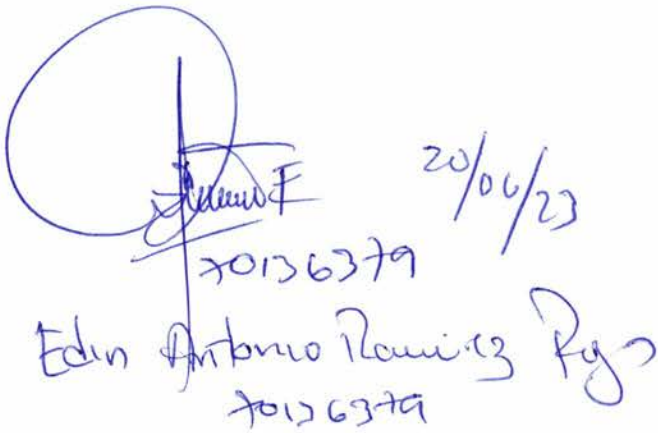 20/06/23
70136379
Edin Antonio Ramirez
70136379